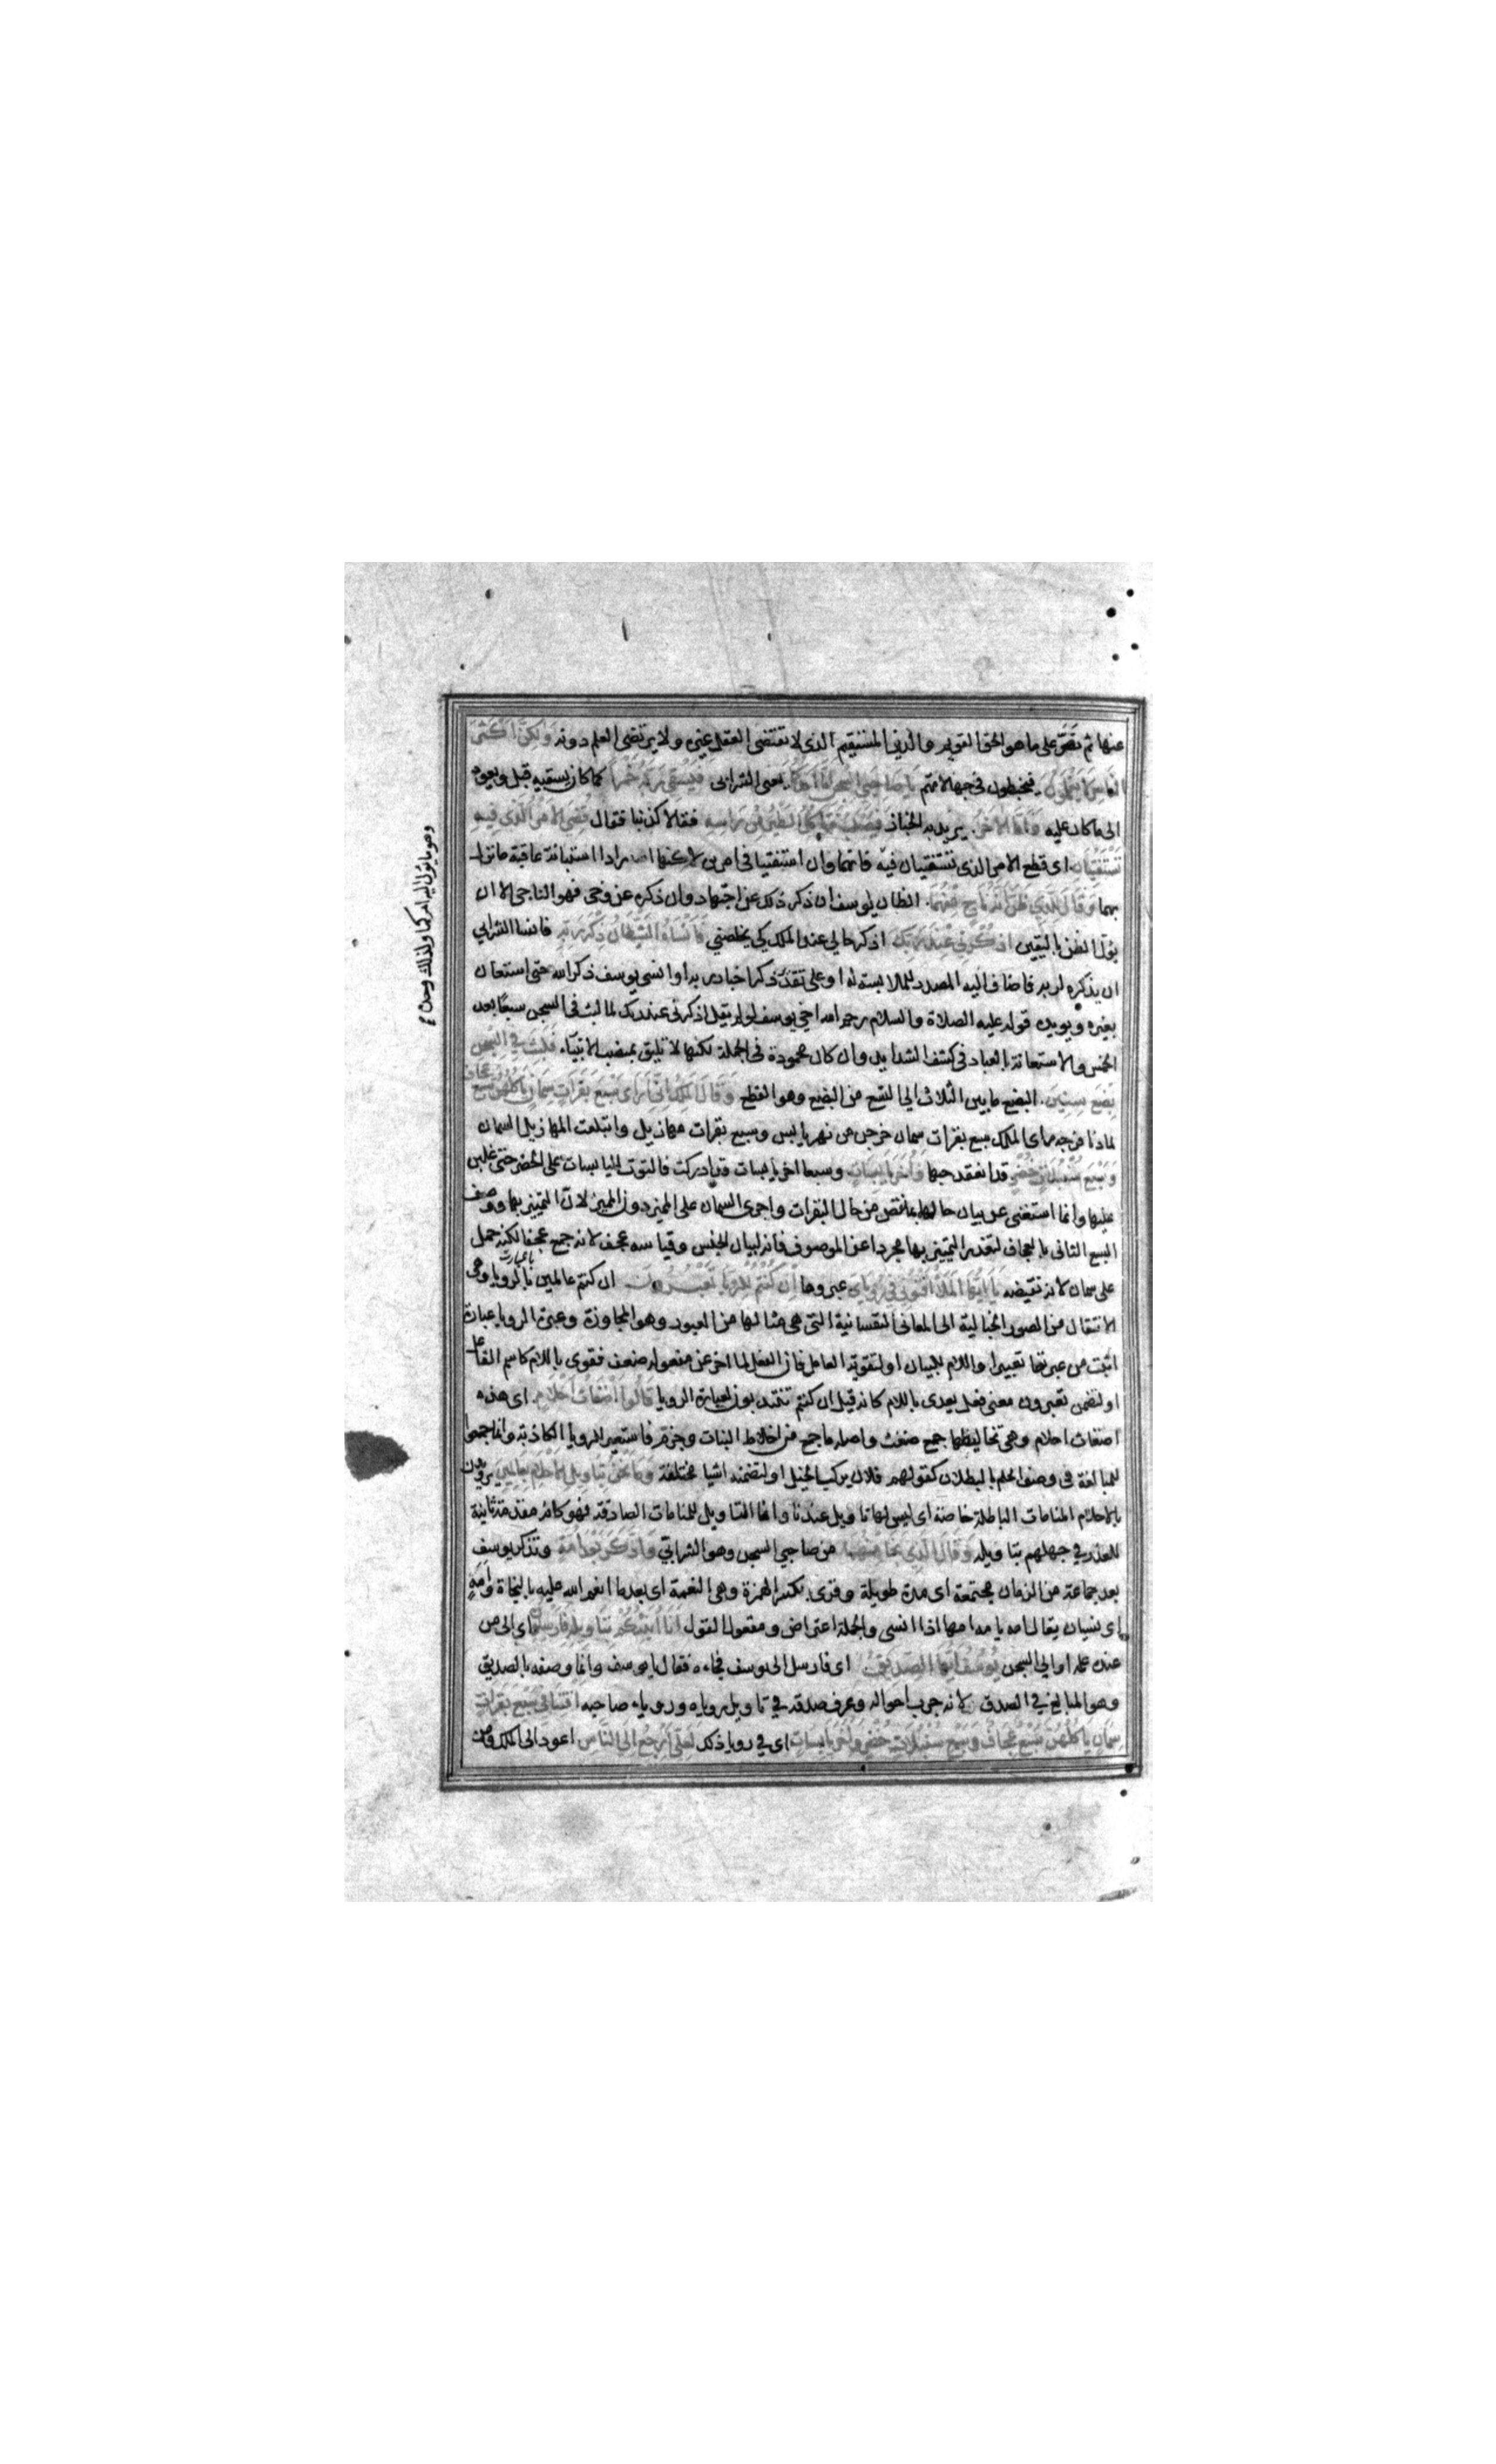 عنها ثم نص على ما هو الحق القويم والدين المستقيم الذى لا تقتضى العقل غيره ولا يرتضى العلم دونه ولكن اكثر
الناس لا يعلمون فيخبطون فى جهالاتهم يا صاحبى السجن اما احدكما يعنى الشرابى فيسقى ربه خمرا كما كان يسقيه قبل ويعود
الى ما كان عليه واما الاخر يريد به الخباز فيصلب فتاكل الطير من راسه فقالا كذبنا فقال قضى الامر الذى فيه
تستفتيان اى قطع الامر الذى تستفتيان فيه فانهما وان استفتيا فى امرين لكنهما ارادا استبانة عاقبة ما نزل
بهما وقال للذى ظن انه ناج منهما الظان يوسف ان ذكر ذلك عن اجتهاد وان ذكره عن وحى فهو الناجى الا ان
يؤل الظن باليقين اذكرنى عند ربك اذكر حالى عند الملك كى يخلصنى فانساه الشيطان ذكر ربه فانسا الشرابى
ان يذكره لربه فاضاف اليه المصدر لملابسته له او على تقدير ذكر اخبار ربه او انسى يوسف ذكر الله حتى استعان
بغيره ويويده قوله عليه الصلاة والسلام رحم الله اخى يوسف لو لم يقل اذكرنى عند ربك لما لبث فى السجن سبعا بعد
الخمس والاستعانة بالعباد فى كشف الشدايد وان كان محمودة فى الجملة لكنها لا تليق بمنصب الانبياء فلبث فى السجن
بضع سنين البضع ما بين الثلاث الى التسع من البضع وهو القطع وقال الملك انى ارى سبع بقرات سمان ياكلهن سبع عجاف
لما دنا فرجه راى الملك سبع بقرات سمان خرجن من نهر يابس وسبع بقرات مهازيل وابتلعت المهازيل السمان
وسبع سنبلات خضر قد انعقد حبها واخر يابسات وسبعا اخر يابسات قد ادركت فالتوت اليابسات على الخضر حتى غلبن
عليها وانما استغنى عن بيان حالها بما نقص من حال البقرات واجرى السمان على المميز دون المميز لان التمييز بها ووصف
السبع الثانى بالعجاف لتعذر التمييز بها مجردا عن الموصوف فانه لبيان الجنس وقياسه عجف لانه جمع عجفا لكنه حمل
على سمان لانه نقيضه يا ايها الملا افتونى فى رؤياى عبروها ان كنتم للرؤيا تعبرون ان كنتم عالمين بعبارت الرويا وهى
الانتقال من الصور الخيالية الى المعانى النفسانية التى هى مثالها من العبور وهو المجاوزة وعبرة الرويا عبارة
اثبت من عبرتها تعبيرا واللام للبيان او لتقوية العامل فان الفعل لما اخر عن مفعوله ضعف فقوى باللام كاسم الفاعل
او لتضمن تعبرون معنى فعل يعدى باللام كانه قيل ان كنتم تنتدبون لعبارة الرويا قالوا اضغاث احلام اى هذه
اضغاث احلام وهى تخاليطها جمع ضغث واصله ما جمع من اخلاط النبات وحزم فاستعير للرويا الكاذبة وانما جمعوا
للمبالغة فى وصف الحلم بالبطلان كقولهم فلان يركب الخيل او لتضمنه اشيا مختلفة وما نحن بتاويل الاحلام بعالمين يريدون
بالاحلام المنامات الباطلة خاصة اى ليس لها تاويل عندنا وانما التاويل للمنامات الصادقة فهو كانه مقدمة ثانية
للعذر فى جهلهم بتاويله وقال الذى نجا منهما من صاحبى السجن وهو الشرابى وادكر بعد امة وتذكر يوسف
بعد جماعة من الزمان مجتمعة اى مدة طويلة وقرى بكسر الهمزة وهى النعمة اى بعد ما انعم الله عليه بالنجاة وامه
اى نسيان يقال امه يامه امها اذا نسى والجملة اعتراض ومقعول القول انا انبئكم بتاويله فارسلون اى الى من
عنده علمه او الى السجن يوسف ايها الصديق اى فارسل الى يوسف فجاءه فقال يا يوسف وانما وصفه بالصديق
وهو المبالغ فى الصدق لانه جرب احواله وعرف صدقه فى تاويل روياه وروياء صاحبه افتنا فى سبع بقرات
سمان ياكلهن سبع عجاف وسبع سنبلات خضر واخر يابسات اى فى رويا ذلك لعلى ارجع الى الناس اعود الى الملك ومن
وهو ما يؤل اليه امركما ولذلك وحده